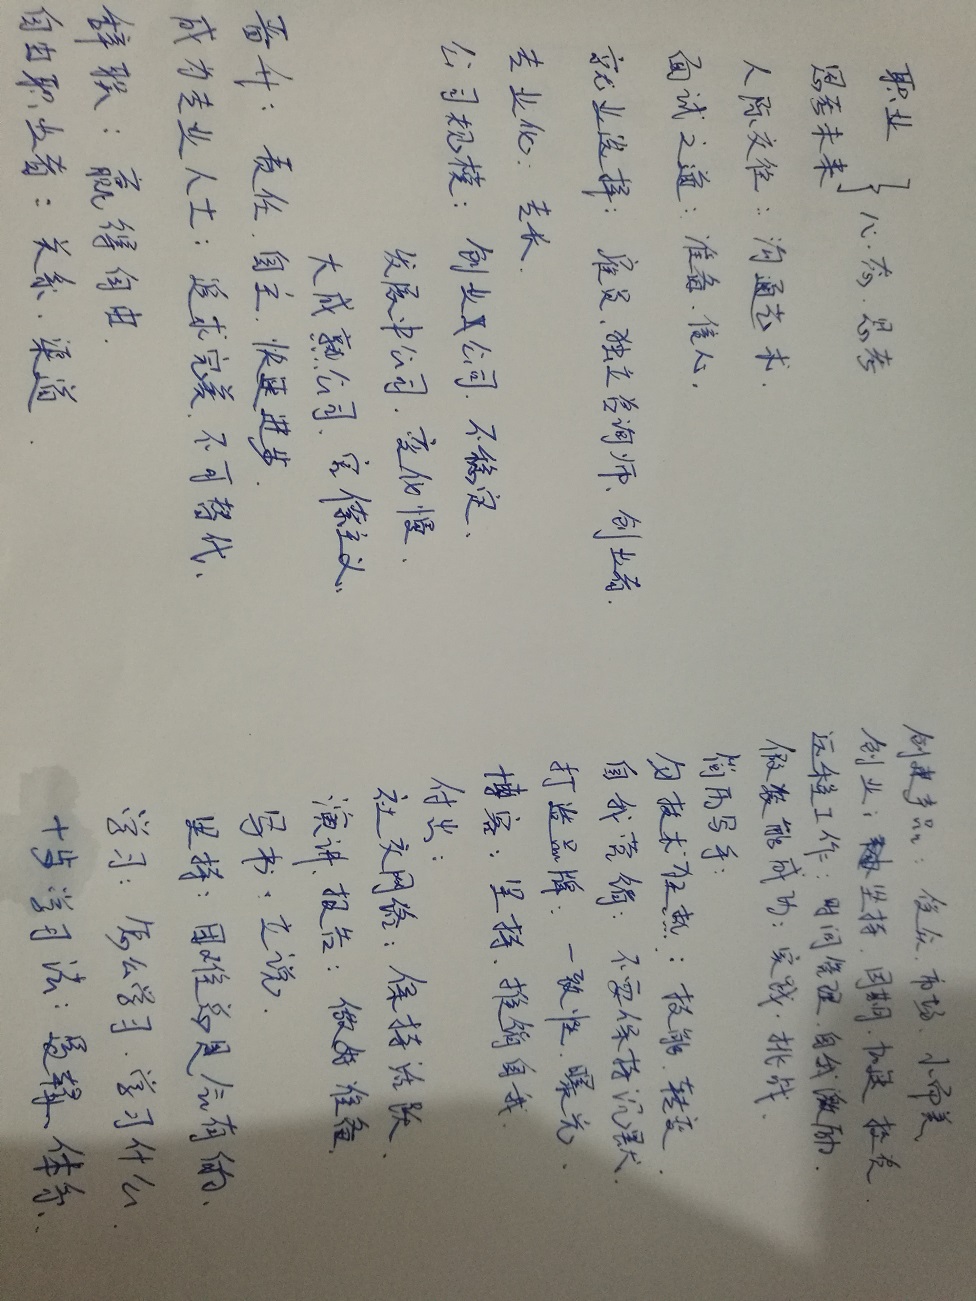 职业
思考未来 } 心态.思考
人际交往：沟通艺术.
面试之道：准备.信心.
就业选择：雇员.独立咨询师、创业者.
专业化：专长.
公司规模：创业型公司.不稳定.
发展中公司.变化慢.
大成熟公司.官僚主义.
晋升：责任.自主.快速进步.
成为专业人士：追求完美.不可替代.
辞职：赢得自由.
自由职业者：关系.渠道.
创建产品：受众.市场.
创业：坚持.周期.加速 投资.
远程工作：时间管理.自我激励.
假装能成功：实战.挑战.
简历写手：
勿技术狂热：技能.转变.
自我营销：不要保持沉默.
打造品牌：一致性.曝光.
博客：坚持.推销自我
付出：
社交网络：保持活跃.
演讲.报告：做好准备
写书：立说.
坚持：困难总是会有的.
学习：怎么学习.学习什么.
十步学习法：逻辑.体系.